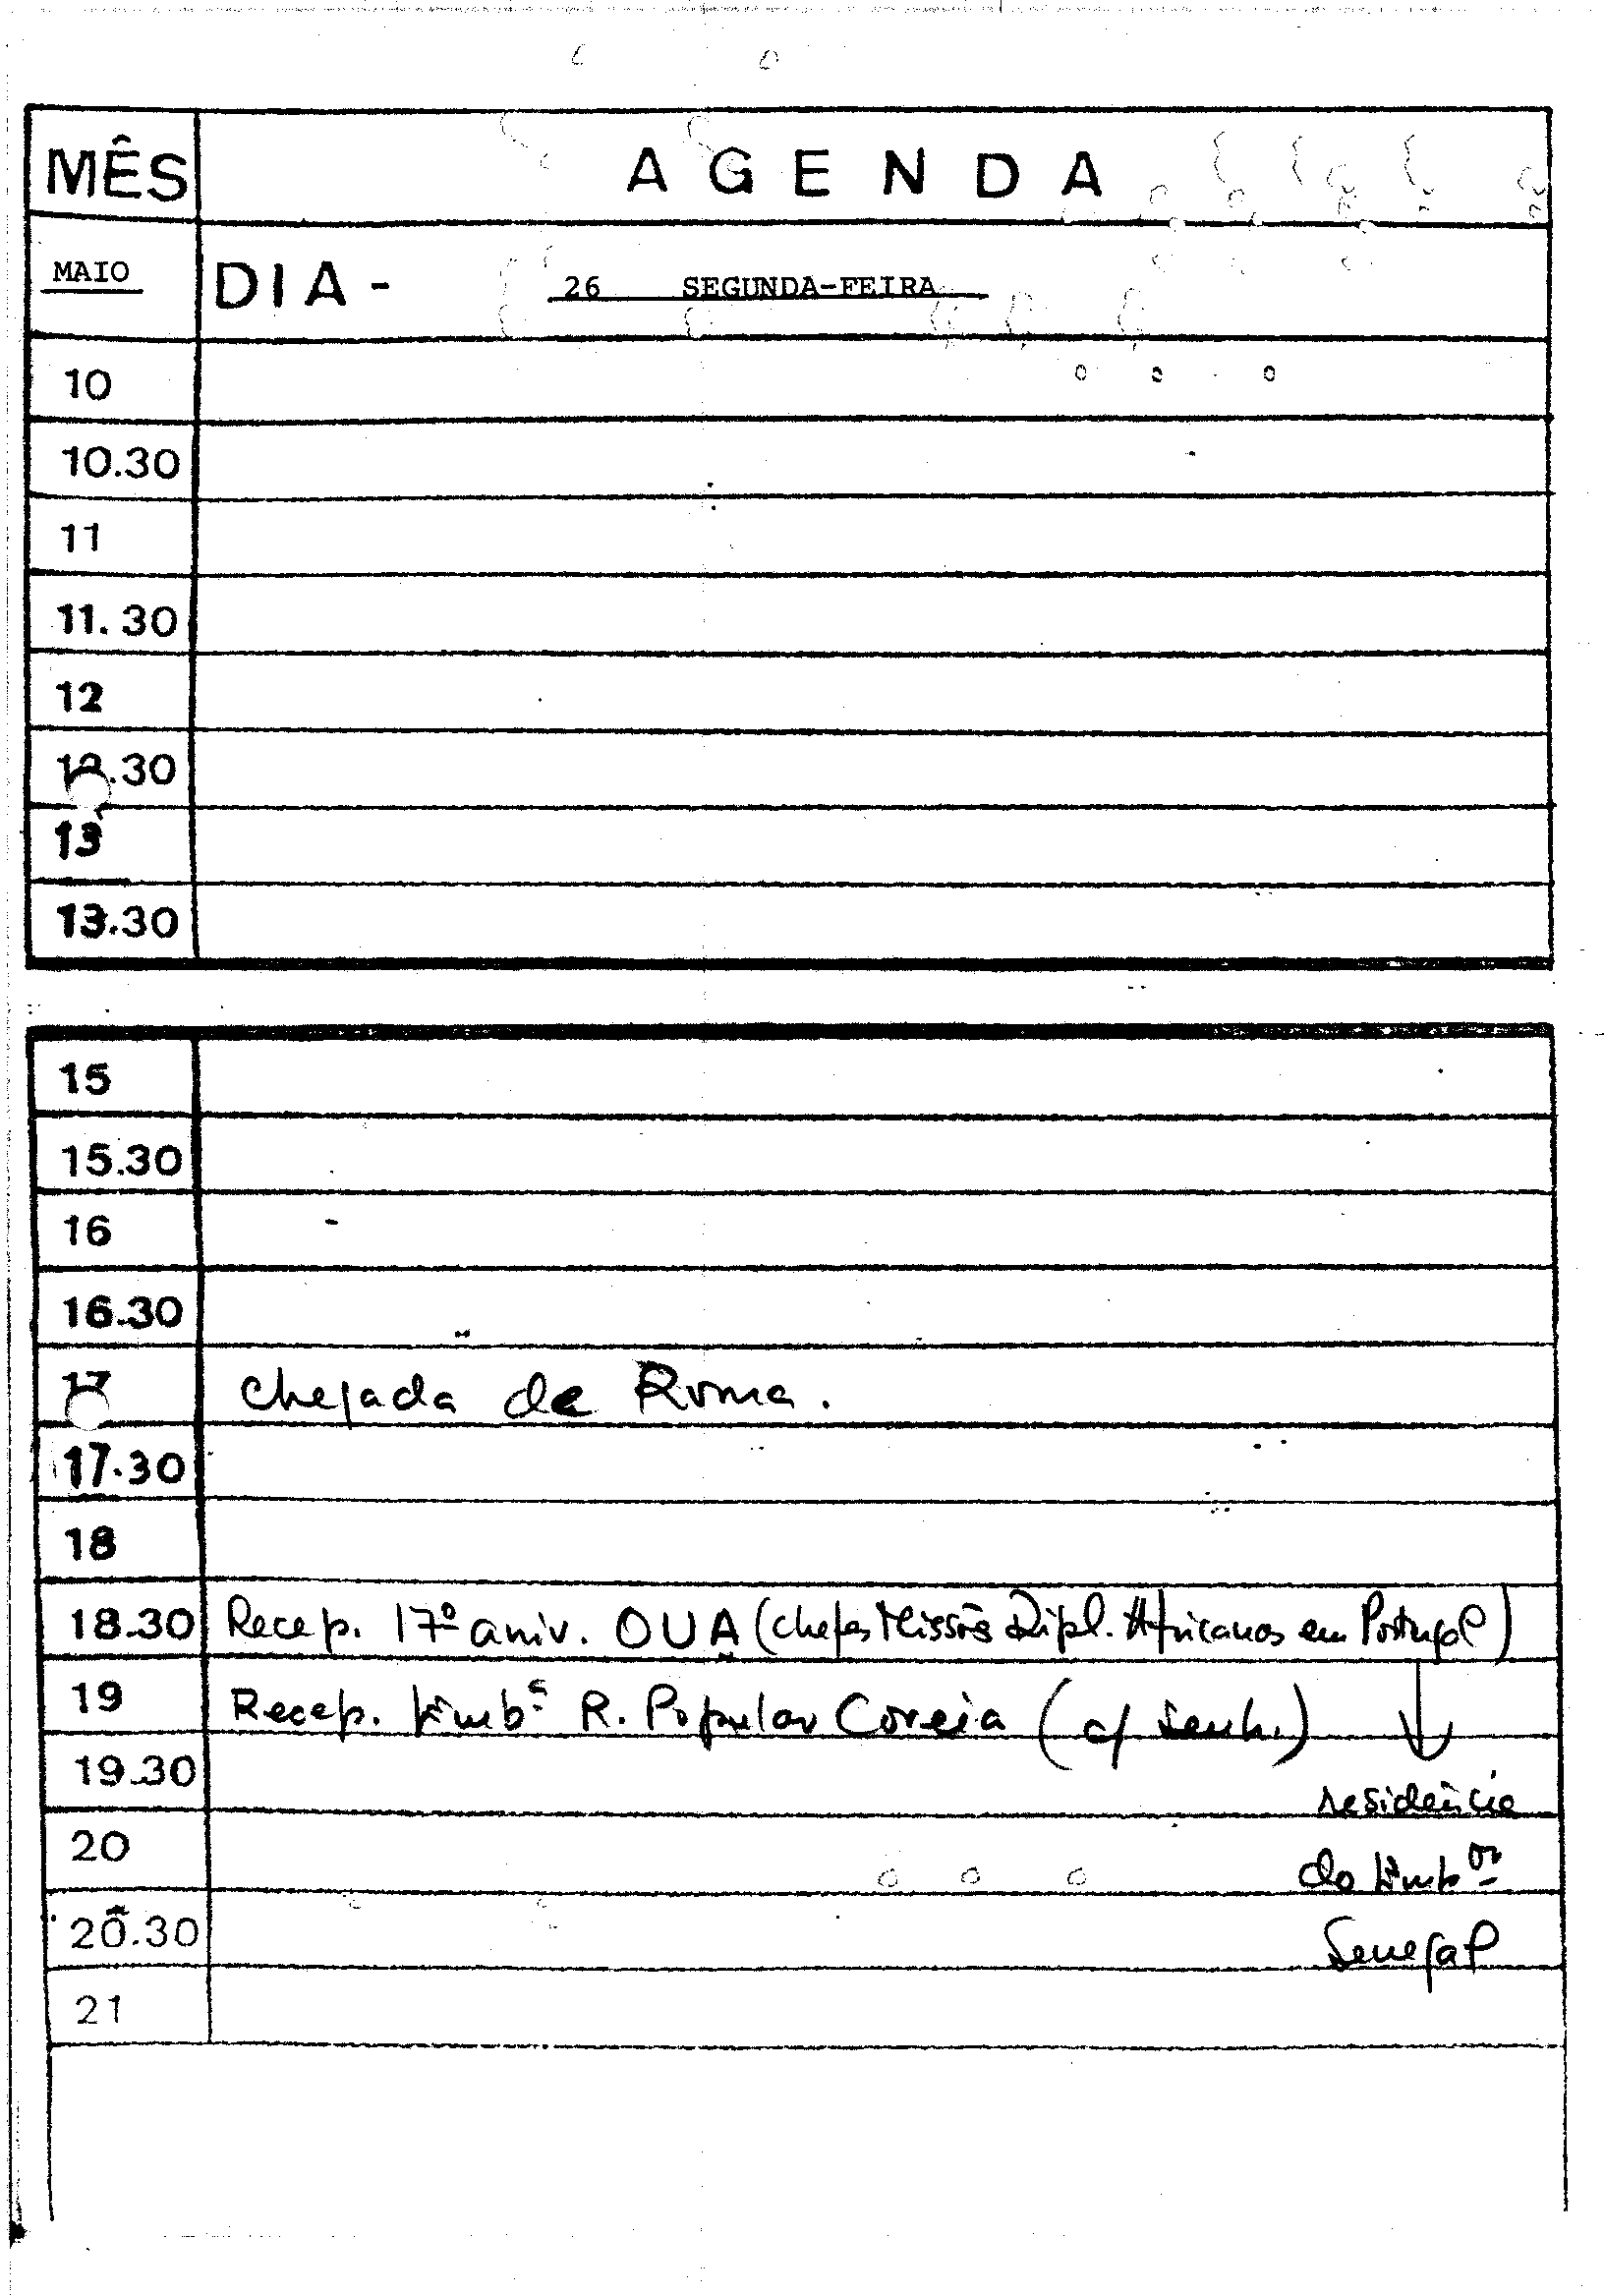 MÊS AGENDA
MAIO DIA - 26 SEGUNDA-FEIRA
10
10.30
11
11.30
12
12.30
13
13.30
15
15.30
16
16.30
17 Chegada de Roma.
17.30
18
18.30 Recep. 17º aniv. OUA (chefes Missões Dipl. Africanos em Portugal)
19 Recep. Embª R. Popular Coreia (c/ Senh.)
19.30 residência
20 do Embor
20.30 Senegal
21